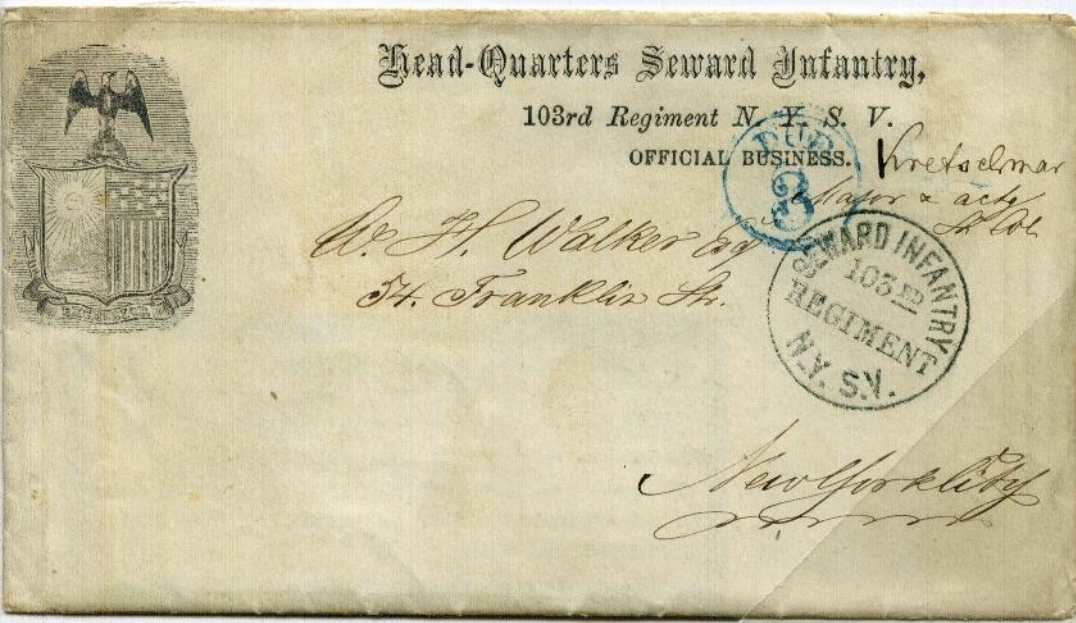 Head-Quarters Seward Infantry,
103rd Regiment N. Y. S. V.
OFFICIAL BUSINESS.
Kretschmar
Major & actg
Lt Col
DUE
3
W. H. Walker Esq
54. Franklin Str.
SEWARD INFANTRY
103RD
REGIMENT
N.Y. S.V.
New York City
EXCELSIOR